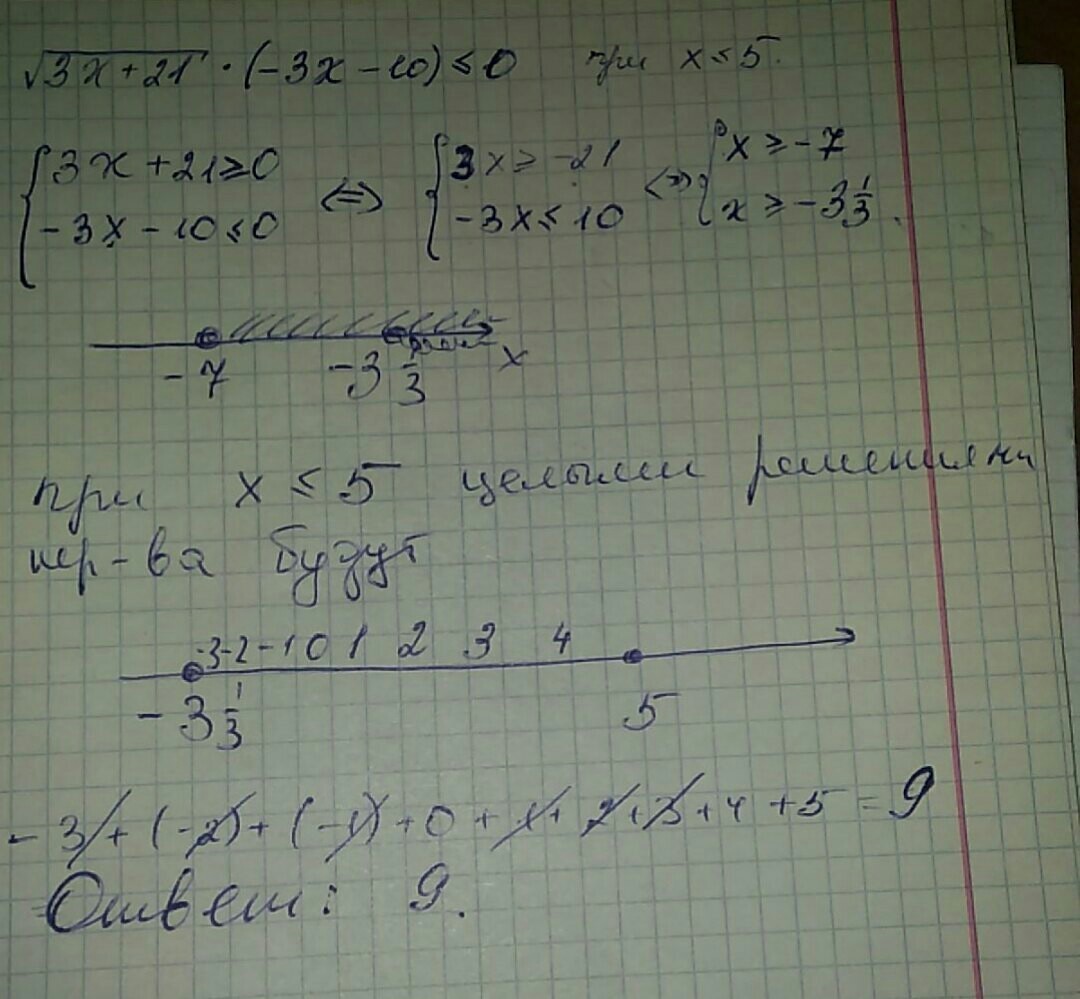 √3x+21 · (-3x-10) ≤ 0 при x ≤ 5.
{ 3x+21 ≥ 0 <=> { 3x ≥ -21 <=> { x ≥ -7
-3x-10 ≤ 0 -3x ≤ 10 x ≥ -3 1/3.
-7 -3 1/3 x
при x ≤ 5 целыми решениями
нер-ва будут
-3 -2 -1 0 1 2 3 4
-3 1/3 5
-3 + (-2) + (-1) + 0 + 1 + 2 + 3 + 4 + 5 = 9
Ответ: 9.